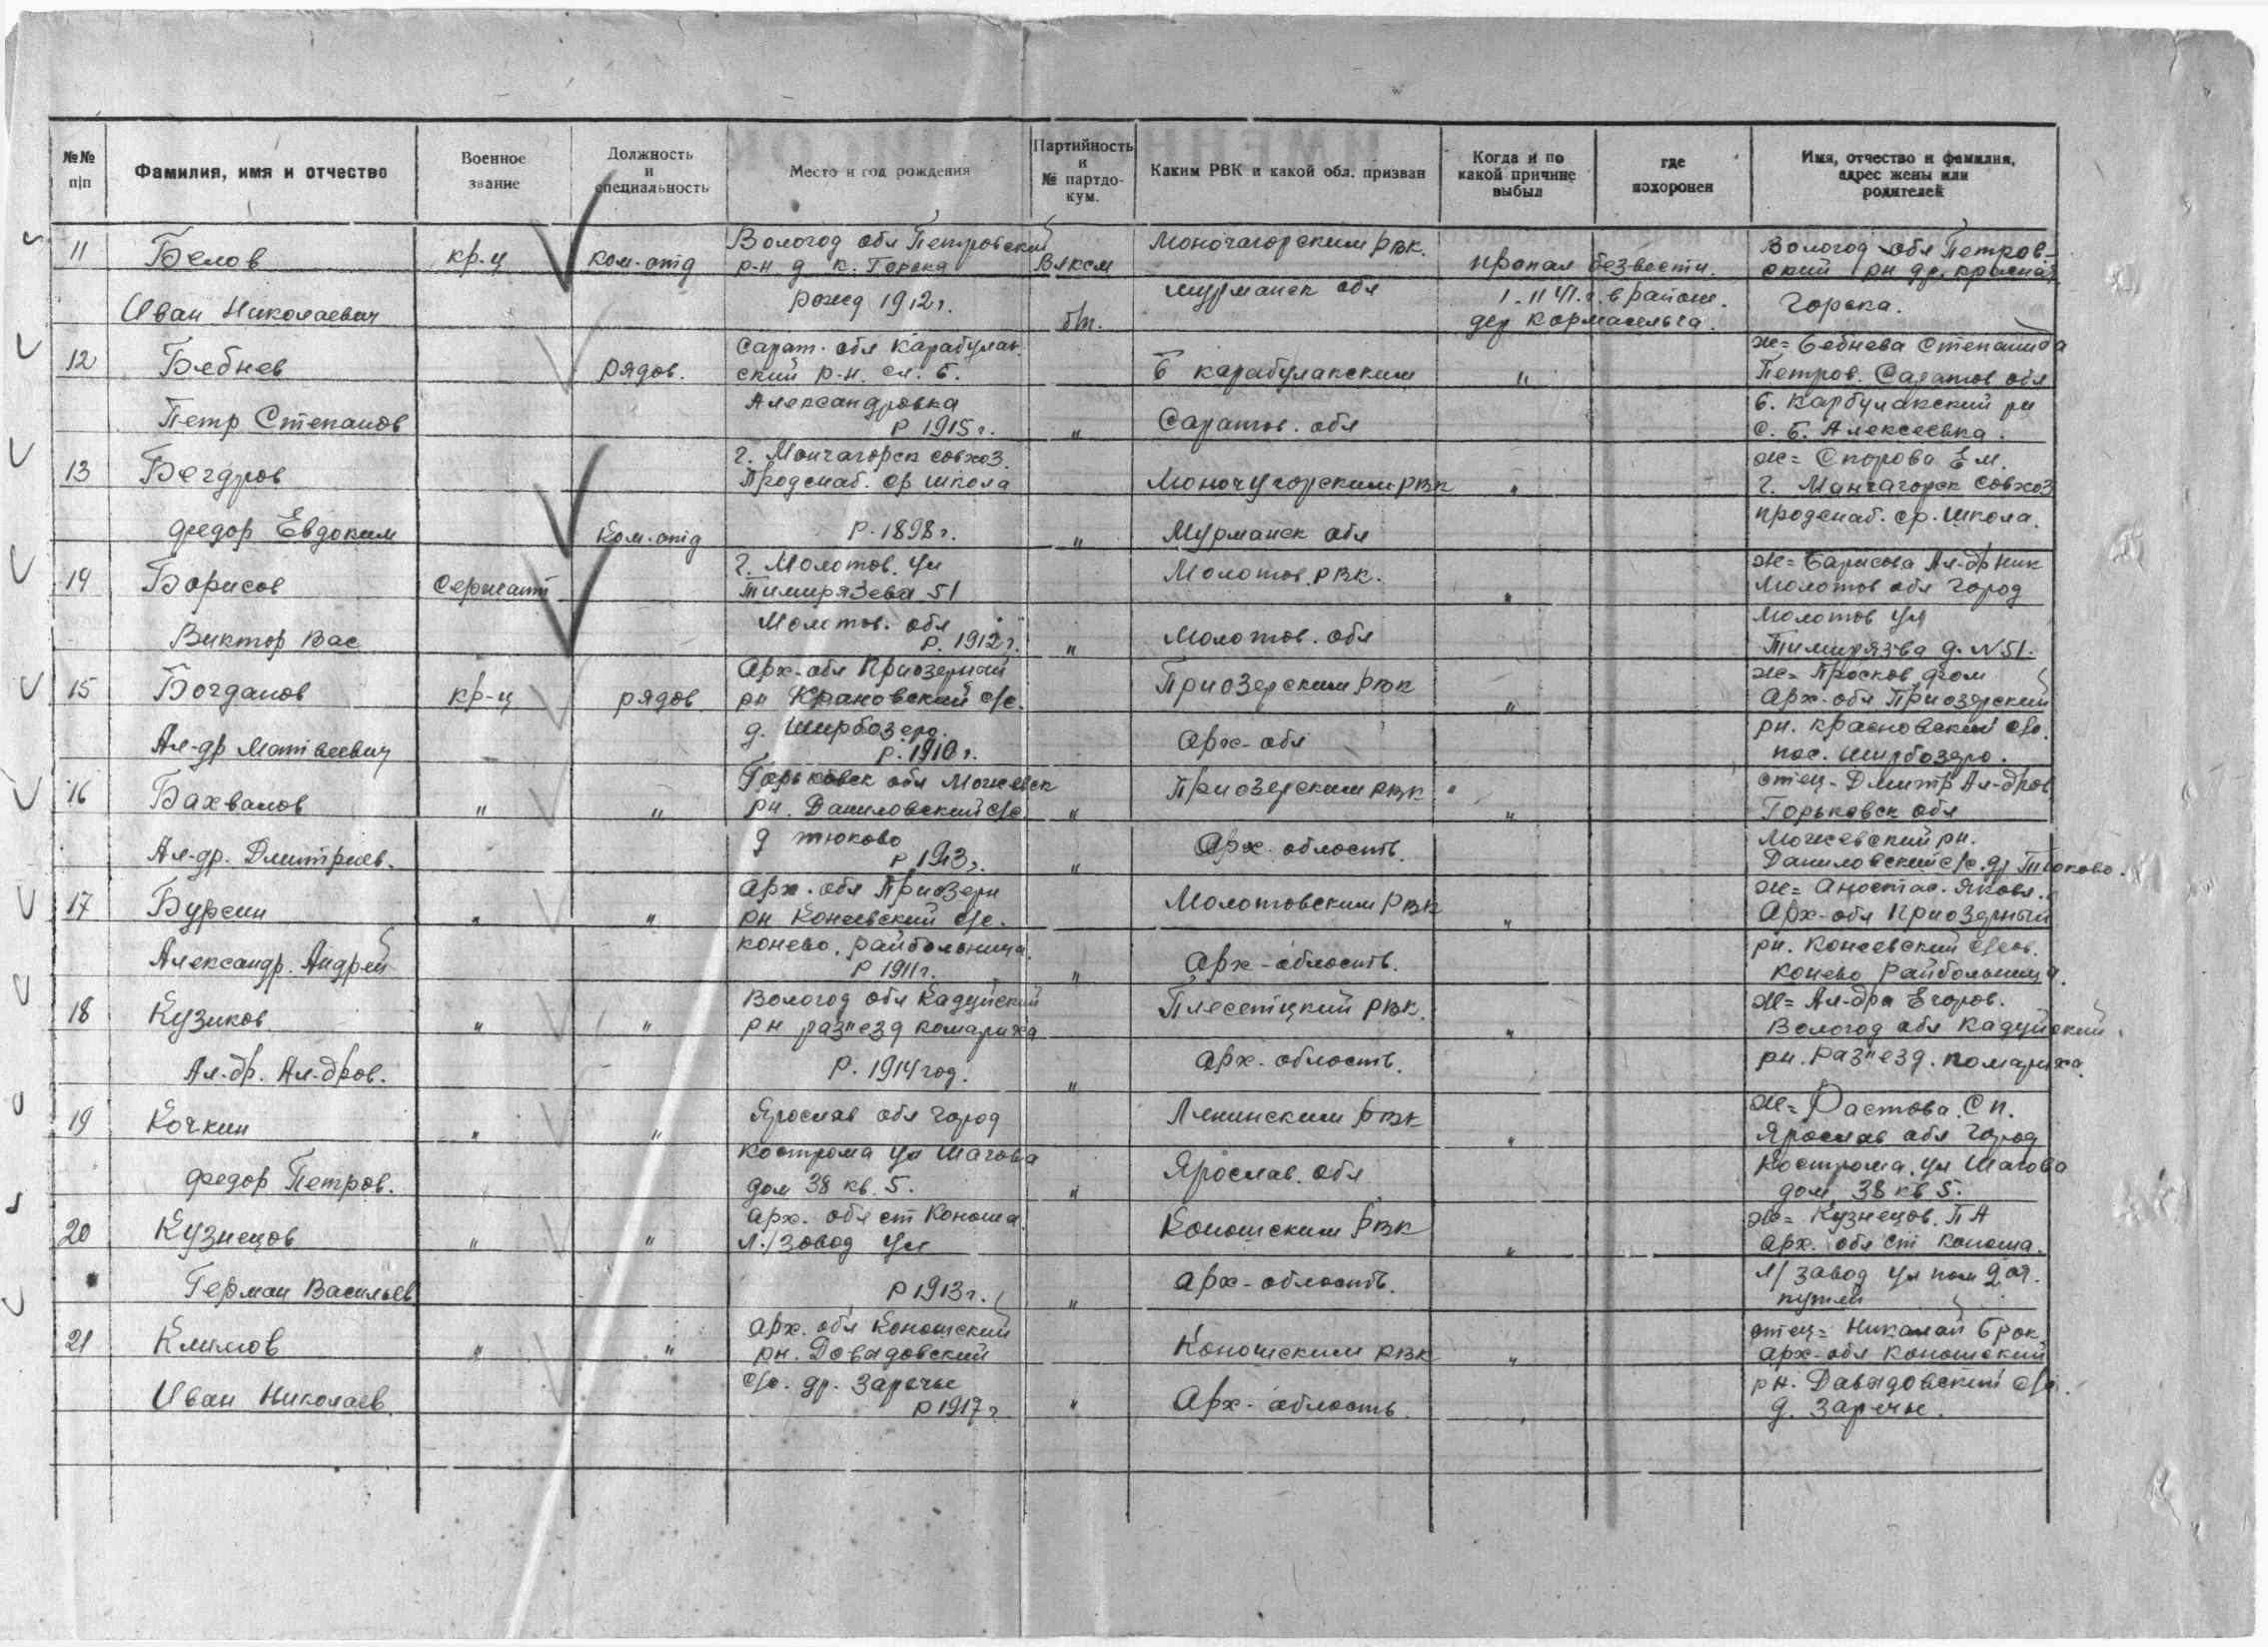 №№ п|п
Фамилия, имя и отчество
Военное звание
Должность и специальность
Место и год рождения
Партийность и № партдокум.
Каким РВК и какой обл. призван
Когда и по какой причине выбыл
где похоронен
Имя, отчество и фамилия, адрес жены или родителей
11 Белов кр-ц ком-отд Вологод обл Петровский Моночагорским РВК. Вологод обл Петров-
р-н д к. Горека Вл ксм пропал без вести. ский рн др. красная
Иван Николаевич рожд 1912 г. б/п. мурманск обл 1.11 41.г. в районе. Горека.
дер кормасельга.
12 Бебнев рядов. Сарат. обл Карабулак- Б карабулакским " ж= Бебнева Степанида
ский р-н. сл. Б. Петров. Саратов обл
Петр Степанов Александровка " Саратов. обл Б. Карбулакский рн
р 1915 г. с. Б. Алексеевка.
13 Бегдров г. Мончагорск совхоз. Моночугорским РВК " ж= Спорова Е М.
Продснаб. ср школа г. Манчагорск Совхоз
федор Евдоким ком-отд р. 1898 г. " Мурманск обл продснаб. ср. школа.
14 Борисов Сержант г. Молотов. ул Молотов. РВК. " ж= Барисова Ал-др Ник
Тимирязева 51 Молотов обл город
Виктор Вас Молотов. обл " Молотов. обл Молотов ул
р. 1912 г. Тимирязва д. N 51.
15 Богданов кр-ц рядов. Арх-обл Приозерный Приозерским РВК " ж= Просков фом
рн Крановский с/с. Арх-обл Приозерский
Ал-др Матвеевич д. Ширбозеро. Арх-обл рн. красновский с/с.
р. 1910 г. пос. ширбозеро.
16 Бахвалов " " Горьковск обл Можевск Приозерским РВК " отец- Дмитр Ал-дров
рн. Даниловский с/с. " Горьковск обл
Ал-др. Дмитриев. д тюково " Арх. область. Можевский рн.
р 1913 г. Даниловский с/с. др Тюково.
17 Бурсин " " Арх. обл Приозерн Молотовским РВК " ж= Аностас. Яковл.
рн Коневский с/с. Арх-обл Приозерный
Александр. Андрей конево. райбольница. " Арх-область. рн. Коневский с/сов.
р 1911 г. конево Райбольница.
18 Кузиков " " Вологод обл Кадуйский Плесетцкий РВК. " ж= Ал-дра Егоров.
рн разъезд комариха Вологод обл Кадуйский
Ал-др. Ал-дров. р. 1914 год. " Арх-область. рн. Разъезд. помариха.
19 Кочкин " " Ярослав обл город Ленинским РВК " ж= Растова. С п.
Кострома ул Шагова Ярослав обл город
федор Петров. дом 38 кв. 5. " Ярослав. обл Кострома. ул Шагова
дом. 38 кв 5.
20 Кузнецов " " Арх. обл ст Коноша. Коношским РВК " ж= Кузнецов. П А
л./завод ул Арх. обл ст коноша.
Герман Васильев р 1913 г. " Арх-область. л/завод ул пом 2 ой.
путей
21 Климов " " Арх. обл Коношский Коношским РВК " отец= Николай Брок.
рн. Довадовский Арх-обл Коношский
Иван Николаев с/с. др. Заречье " Арх-область. рн. Давыдовский с/с.
р 1917 г д. Заречье.